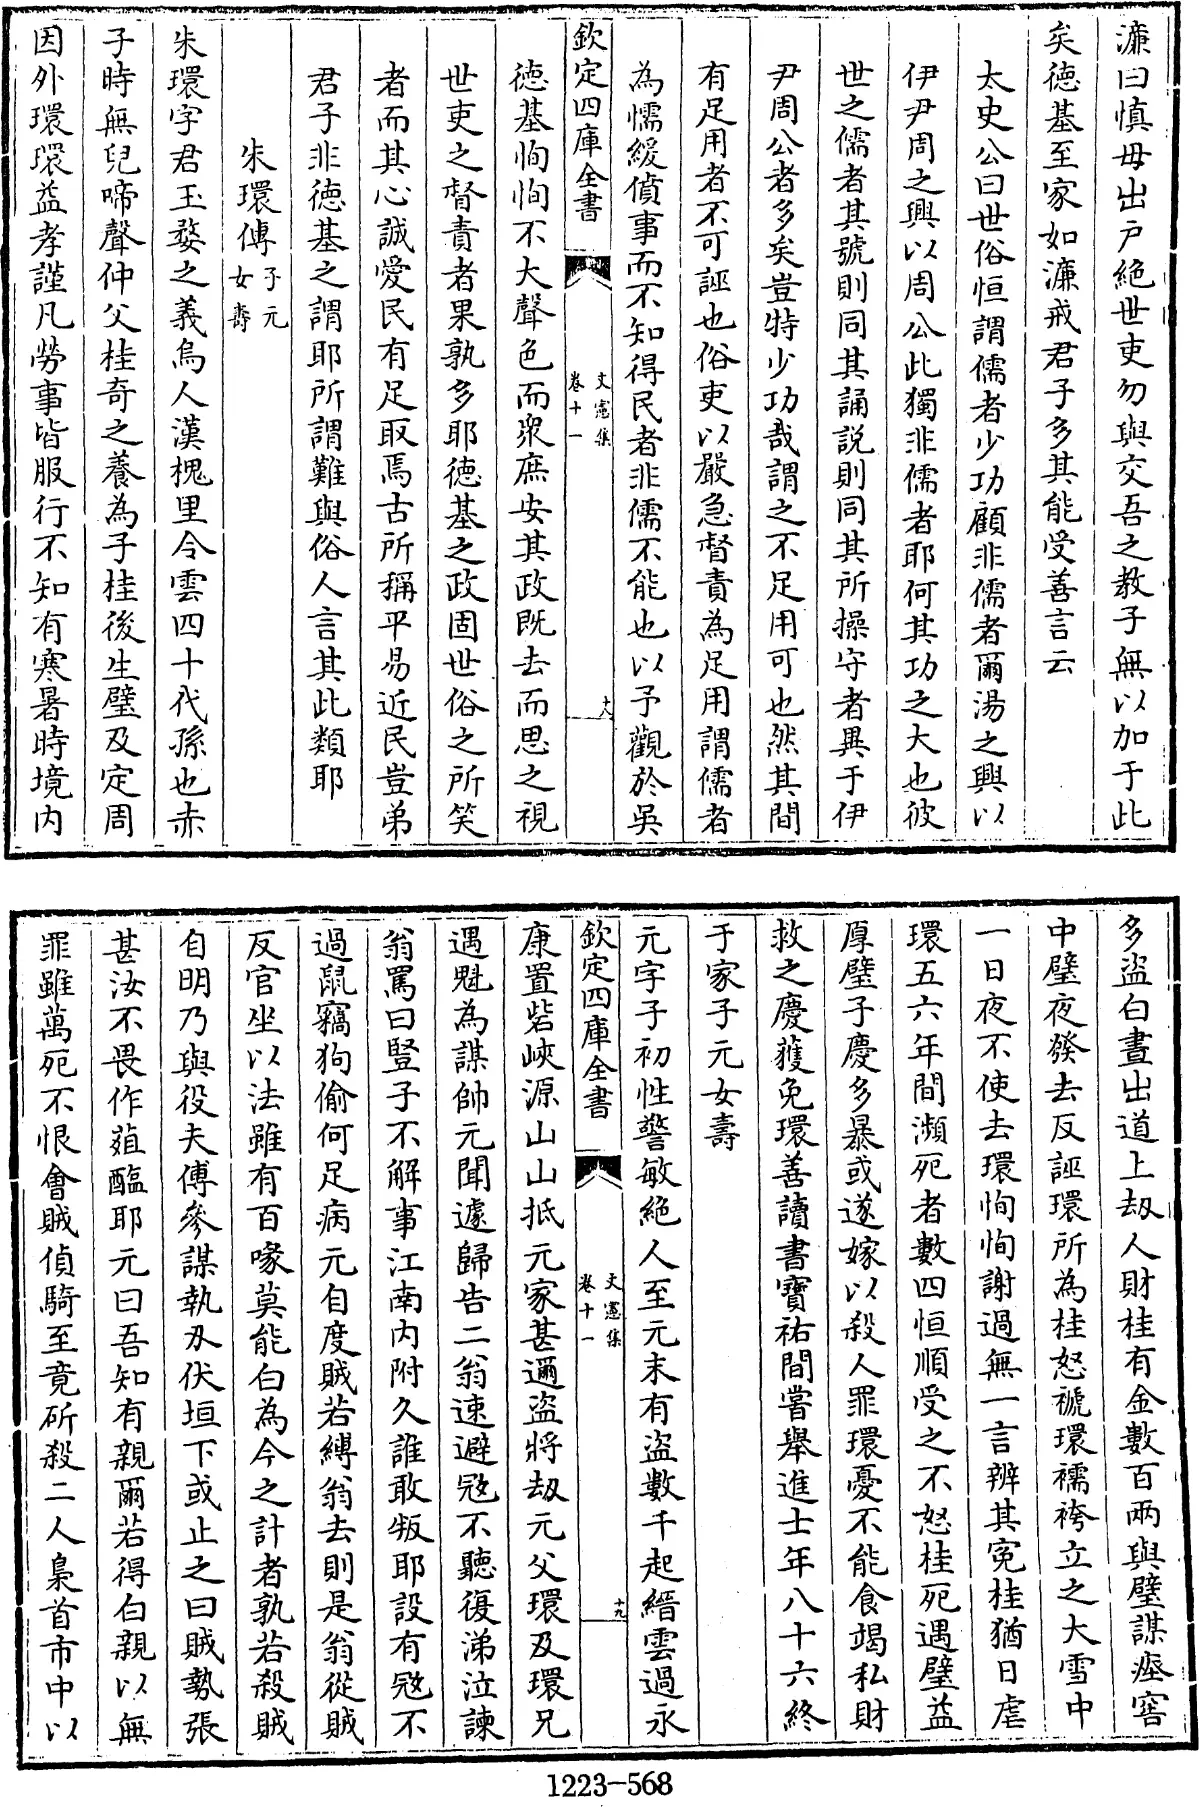 濂曰慎毋出戸絶世吏勿與交吾之教子無以加于此
矣德基至家如濂戒君子多其能受善言云
太史公曰世俗恒謂儒者少功顧非儒者爾湯之興以
伊尹周之興以周公此獨非儒者耶何其功之大也彼
世之儒者其號則同其誦説則同其所操守者異于伊
尹周公者多矣豈特少功哉謂之不足用可也然其間
有足用者不可誣也俗吏以嚴急督責為足用謂儒者
為懦緩僨事而不知得民者非儒不能也以予觀於吳
欽定四庫全書
文憲集
卷十一
十八
德基恂恂不大聲色而衆庶安其政既去而思之視
世吏之督責者果孰多耶德基之政固世俗之所笑
者而其心誠愛民有足取焉古所稱平易近民豈弟
君子非德基之謂耶所謂難與俗人言其此類耶
朱環傳子元
女壽
朱環字君玉婺之義烏人漢槐里令雲四十代孫也赤
子時無兒啼聲仲父桂奇之養為子桂後生璧及定周
因外環環益孝謹凡勞事皆服行不知有寒暑時境内
多盜白晝出道上刼人財桂有金數百兩與璧謀瘞窖
中璧夜發去反誣環所為桂怒褫環襦袴立之大雪中
一日夜不使去環恂恂謝過無一言辨其冤桂猶日虐
環五六年間瀕死者數四恒順受之不怒桂死遇璧益
厚璧子慶多暴或遂嫁以殺人罪環憂不能食竭私財
救之慶獲免環善讀書寶祐間嘗舉進士年八十六終
于家子元女壽
元字子初性警敏絶人至元末有盜數千起縉雲過永
欽定四庫全書
文憲集
卷十一
十九
康置砦峽源山山抵元家甚邇盜將刼元父環及環兄
遇魁為謀帥元聞遽歸告二翁速避冦不聽復涕泣諫
翁罵曰豎子不解事江南内附久誰敢叛耶設有冦不
過鼠竊狗偷何足病元自度賊若縛翁去則是翁從賊
反官坐以法雖有百喙莫能白為今之計者孰若殺賊
自明乃與役夫傅參謀執刃伏垣下或止之曰賊勢張
甚汝不畏作葅醢耶元曰吾知有親爾若得白親以無
罪雖萬死不恨會賊偵騎至竟斫殺二人梟首市中以
1223-568